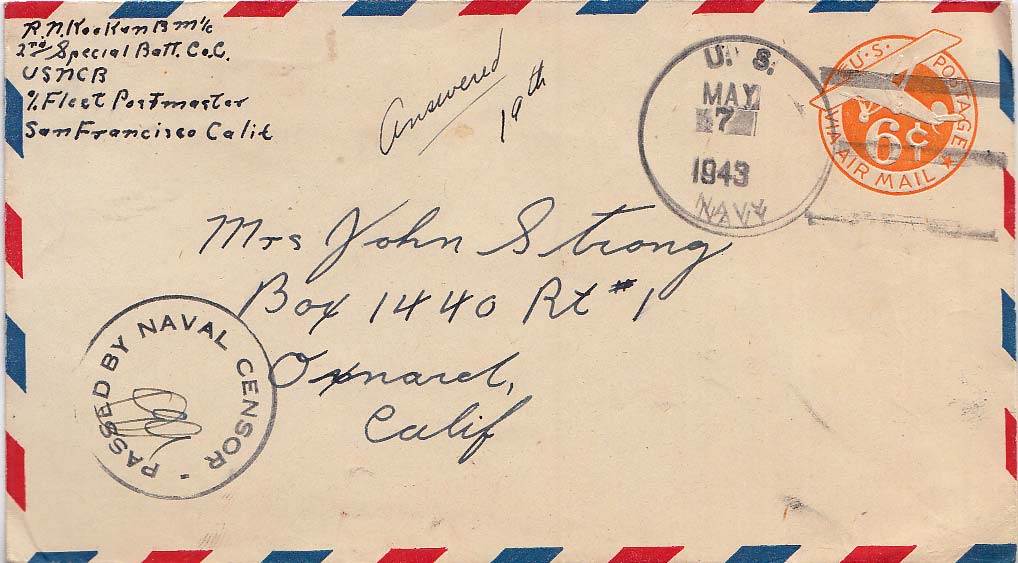 R.N. Kooken B M 1/c
2nd Special Batt. Co.C.
USNCB
% Fleet Postmaster
San Francisco Calif
Answered
19th
U. S.
MAY
7
1943
NAVY
U.S. POSTAGE
6¢
VIA AIR MAIL
Mrs John Strong
Box 1440 Rt #1
Oxnard,
Calif
PASSED BY NAVAL CENSOR